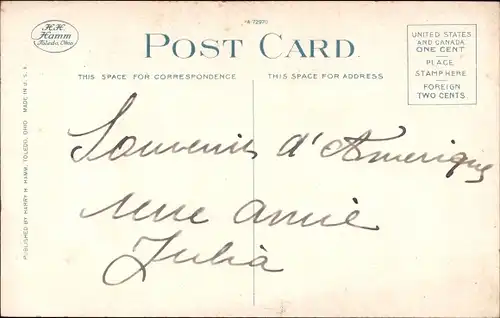 H.H.
Hamm
Toledo, Ohio
"A-72970
POST CARD
THIS SPACE FOR CORRESPONDENCE
THIS SPACE FOR ADDRESS
UNITED STATES
AND CANADA
ONE CENT
PLACE
STAMP HERE
FOREIGN
TWO CENTS
PUBLISHED BY HARRY H. HAMM, TOLEDO, OHIO MADE IN U.S.A.
Souvenir d'Amerique
une amie
Julia